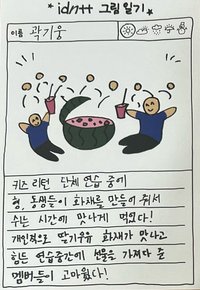 * idntt 그림일기 *
이름 곽기웅
키즈 리턴 단체 연습 중에
형, 동생들이 화채를 만들어 줘서
쉬는 시간에 맛나게 먹었다!
개인적으로 딸기우유 화채가 맛나고
힘든 연습중간에 선물을 가져다 준
멤버들이 고마웠다!